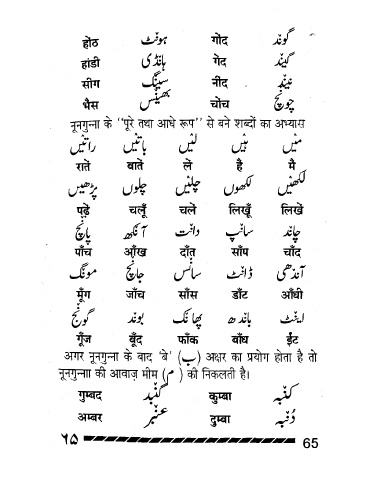 होंठ ہونٹ गोंद گوند
हांडी ہانڈی गेंद گیند
सींग سینگ नींद نیند
भैंस بھینس चोंच چونچ
नूनगुन्ना के "पूरे तथा आधे रूप" से बने शब्दों का अभ्यास
میں ہیں لیں باتیں راتیں
रातें बातें लें है मै
لکھیں لکھوں چلیں چلوں پڑھیں
पढ़ें चलूँ चलें लिखूँ लिखें
چاند سانپ دانت آنکھ پانچ
पाँच आँख दाँत साँप चाँद
آندھی ڈانٹ سانس جانچ مونگ
मूँग जाँच साँस डाँट आँधी
اینٹ باندھ پھانک بوند گونج
गूँज बूँद फाँक बाँध ईंट
अगर नूनगुन्ना के बाद 'बे' (ب) अक्षर का प्रयोग होता है तो
नूनगुन्नाा की आवाज़ मीम (م) की निकलती है।
गुम्बद گنبد कुम्बा کنبہ
अम्बर عنبر दुम्बा دُنبہ
۶۵ 65